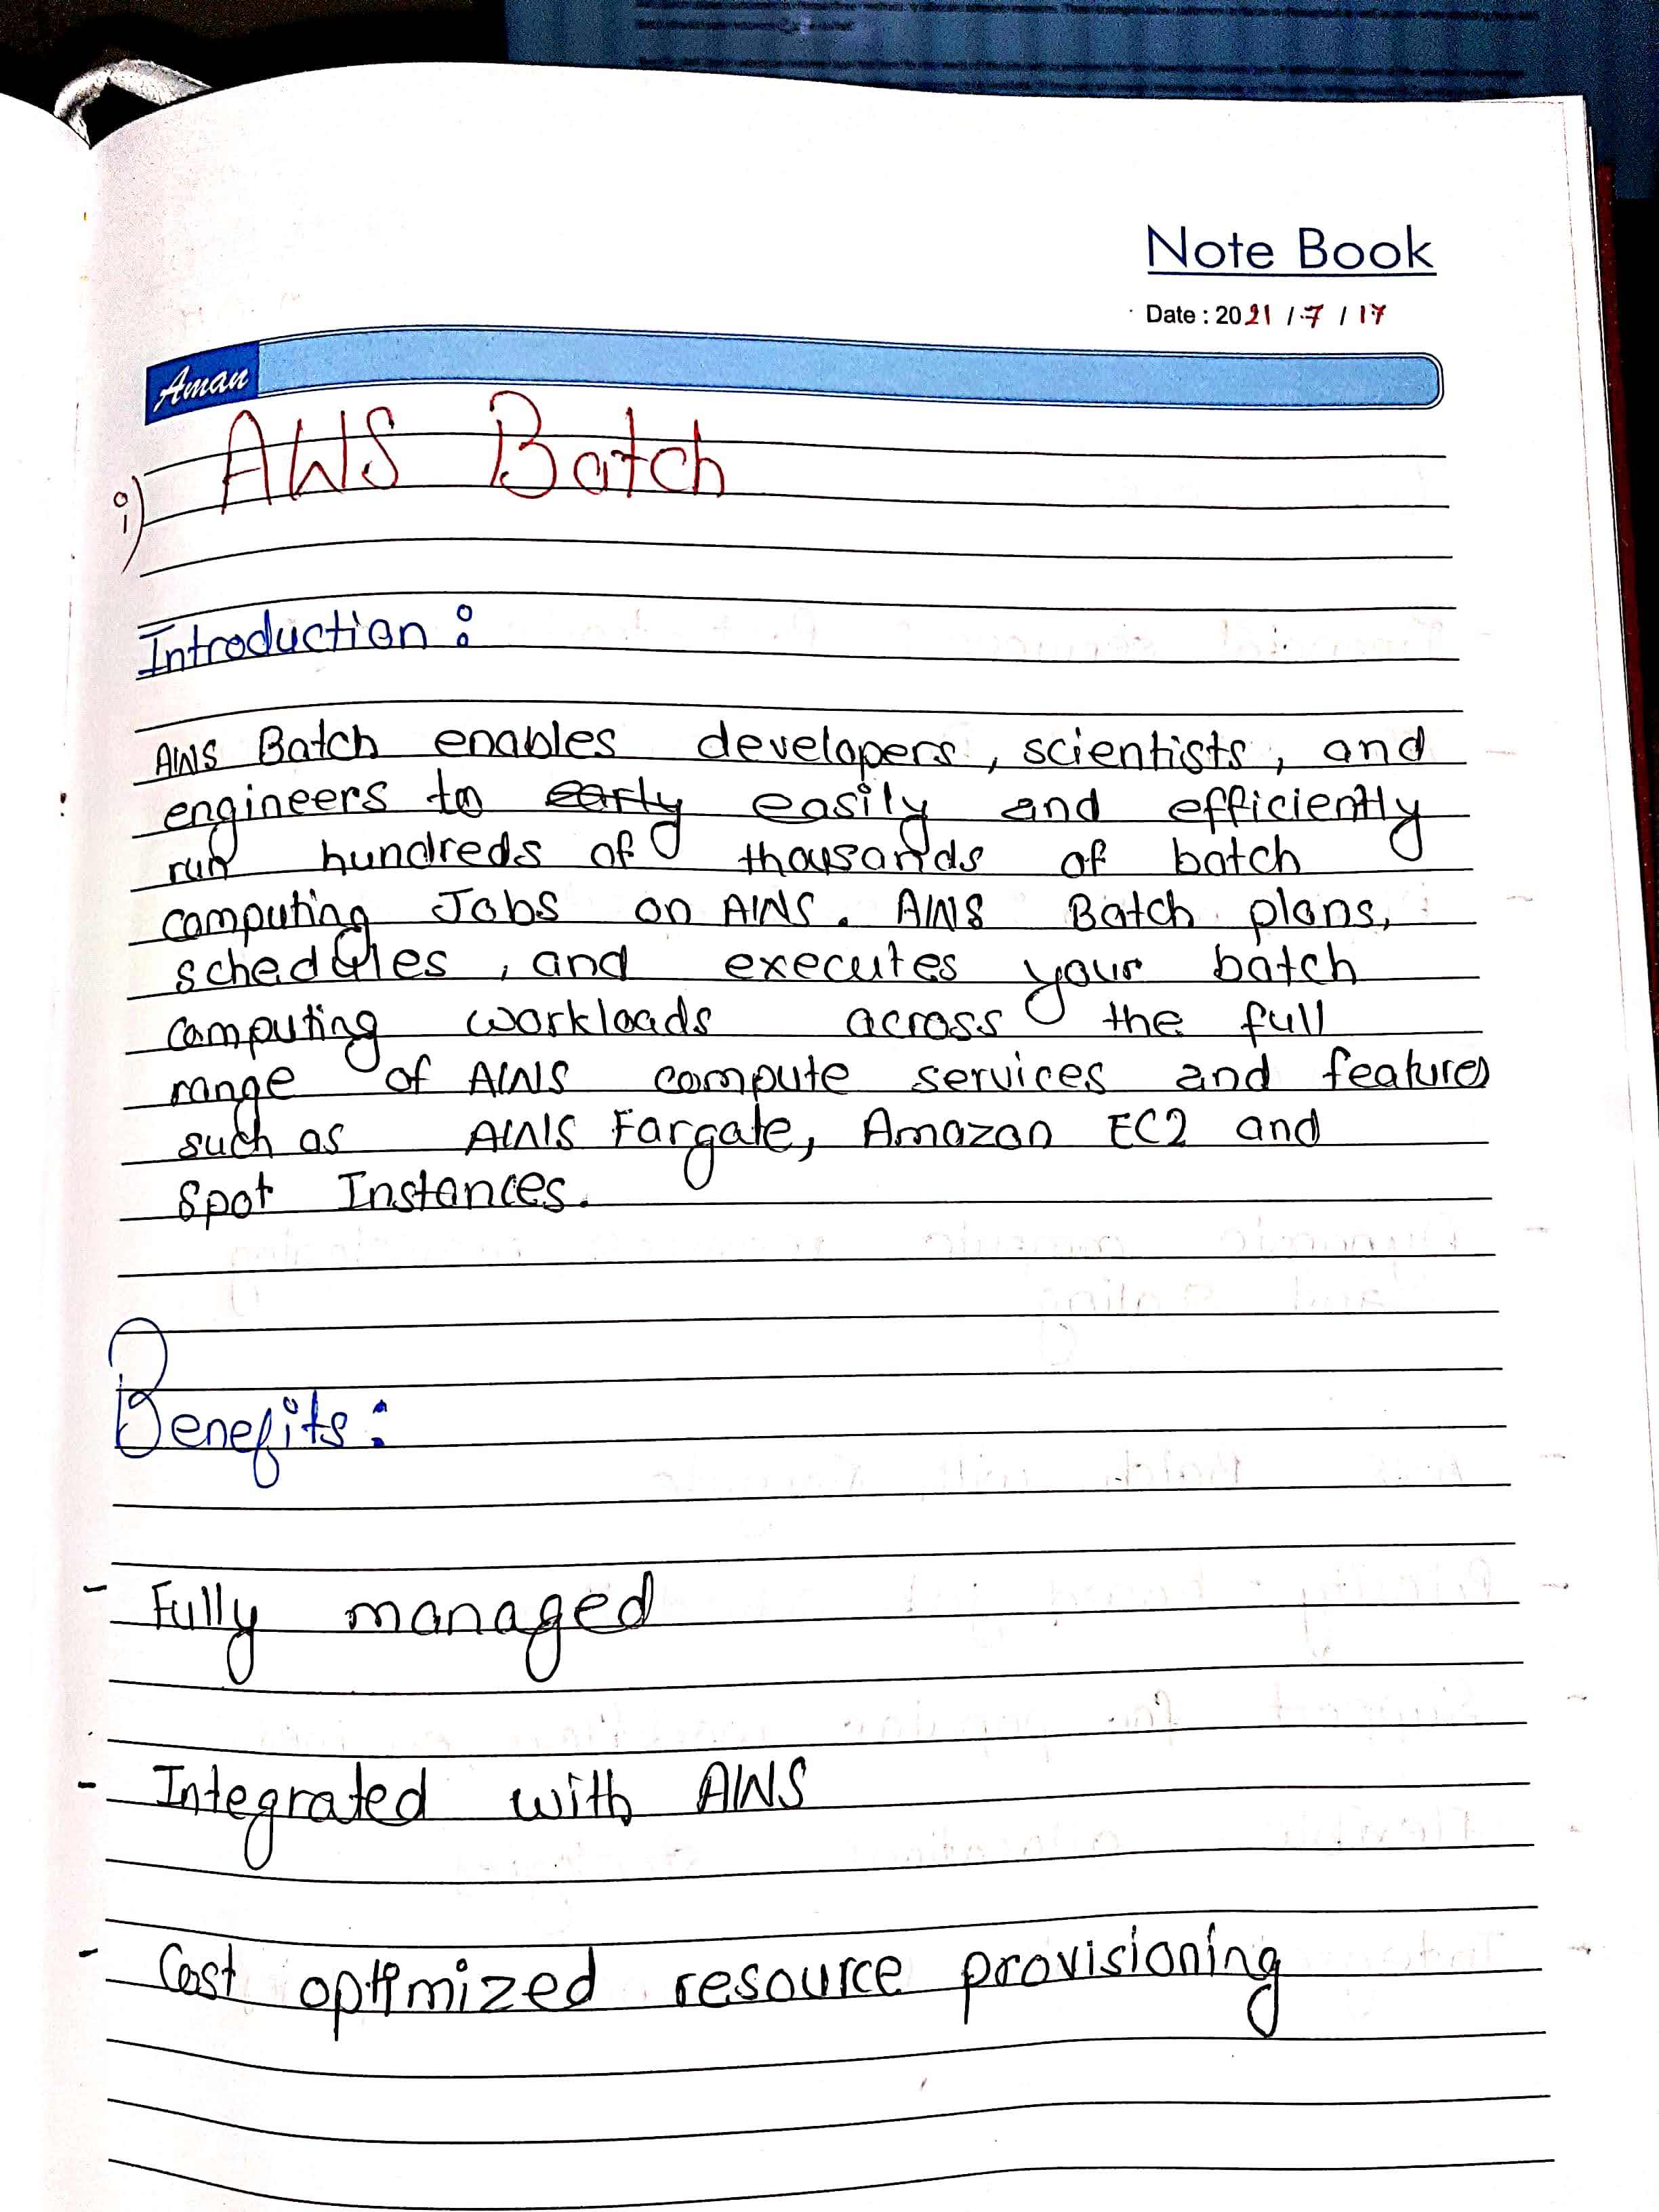 Note Book
Date : 2021 / 7 / 17
Aman
i) AWS Batch
Introduction :
AWS Batch enables developers, scientists, and
engineers to early easily and efficiently
run hundreds of thousands of batch
computing Jobs on AWS. AWS Batch plans,
schedules, and executes your batch
computing workloads across the full
range of AWS compute services and features
such as AWS Fargate, Amazon EC2 and
Spot Instances.
Benefits :
- Fully managed
- Integrated with AWS
- Cost optimized resource provisioning